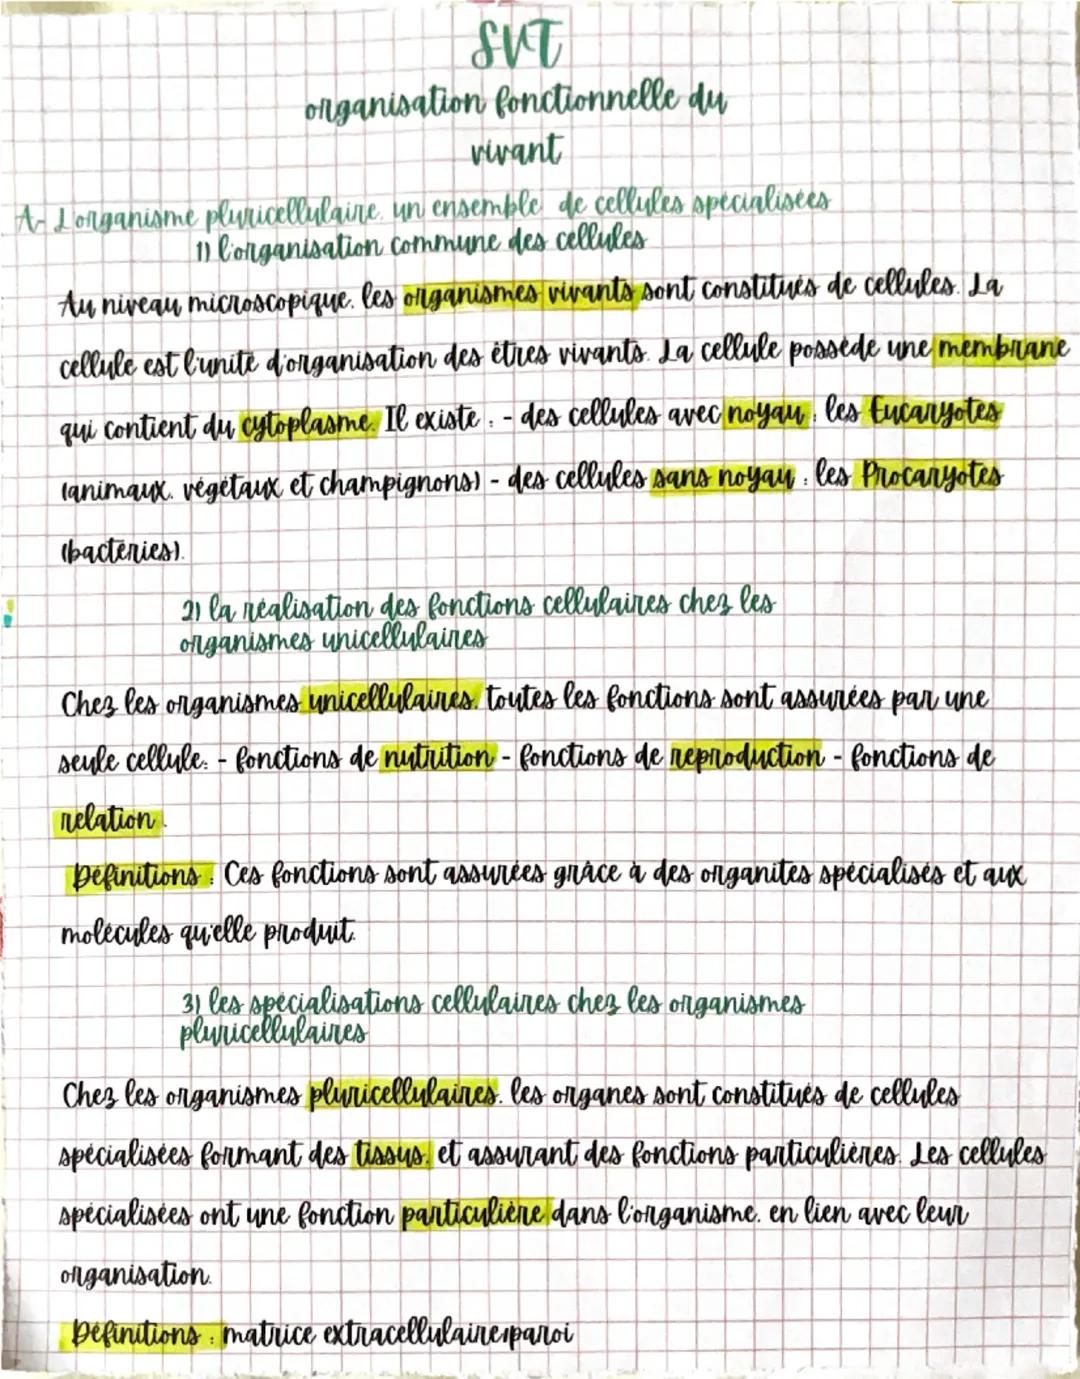 SVT
organisation fonctionnelle du
vivant
A- L'organisme pluricellulaire, un ensemble de cellules spécialisées
1) l'organisation commune des cellules
Au niveau microscopique, les organismes vivants sont constitués de cellules. La
cellule est l'unité d'organisation des êtres vivants. La cellule possède une membrane
qui contient du cytoplasme. Il existe : - des cellules avec noyau : les Eucaryotes
(animaux, végétaux et champignons) - des cellules sans noyau : les Procaryotes
(bactéries).
2) la réalisation des fonctions cellulaires chez les
organismes unicellulaires
Chez les organismes unicellulaires, toutes les fonctions sont assurées par une
seule cellule: - fonctions de nutrition - fonctions de reproduction - fonctions de
relation.
Définitions : Ces fonctions sont assurées grâce à des organites spécialisés et aux
molécules qu'elle produit.
3) les spécialisations cellulaires chez les organismes
pluricellulaires
Chez les organismes pluricellulaires, les organes sont constitués de cellules
spécialisées formant des tissus, et assurant des fonctions particulières. Les cellules
spécialisées ont une fonction particulière dans l'organisme, en lien avec leur
organisation.
Définitions : matrice extracellulaire,paroi